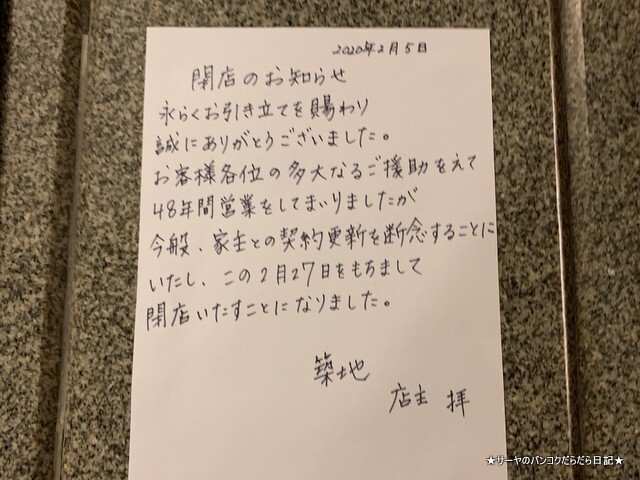 2020年2月5日
閉店のお知らせ
永らくお引き立てを賜わり
誠にありがとうございました。
お客様各位の多大なるご援助をえて
48年間営業をしてまいりましたが
今般、家主との契約更新を断念することに
いたし、この2月27日をもちまして
閉店いたすことになりました。
築地
店主 拝
★サーヤのバンコクだらだら日記★